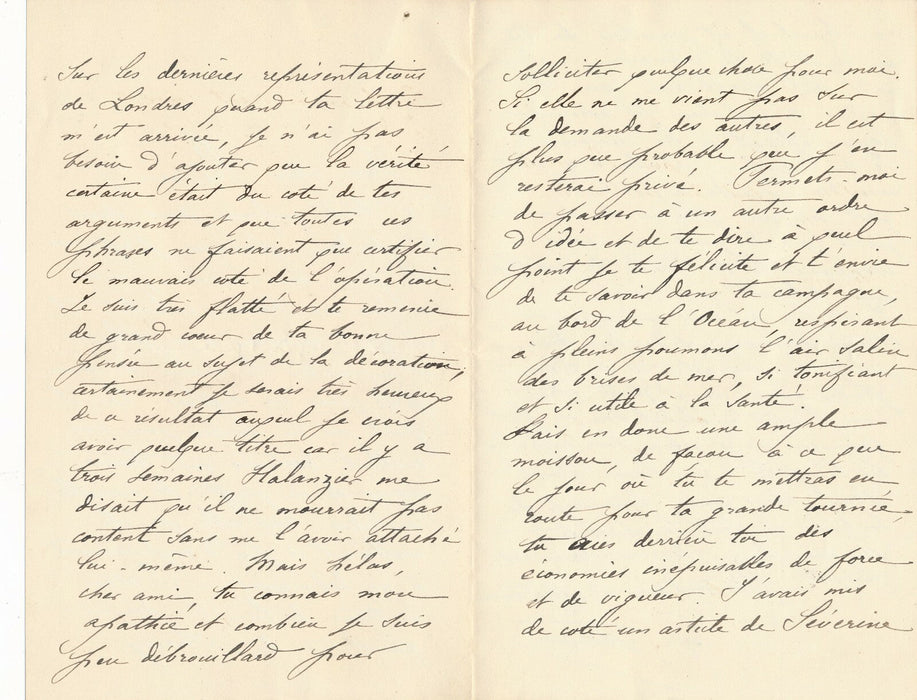 sur les dernières représentations
de Londres quand ta lettre
m'est arrivée, je n'ai pas
besoin d'ajouter que la vérité
certaine était du coté de tes
arguments et que toutes ces
phrases ne faisaient que certifier
le mauvais coté de l'opération.
Je suis très flatté et te remercie
de grand coeur de ta bonne
pensée au sujet de la décoration,
certainement je serais très heureux
de ce résultat auquel je crois
avoir quelque titre car il y a
trois semaines Halanzier me
disait qu'il ne mourrait pas
content sans me l'avoir attaché
lui-même. Mais hélas,
cher ami, tu connais mon
apathie et combien je suis
peu débrouillard pour
solliciter quelque chose pour moi.
Si elle ne me vient pas sur
la demande des autres, il est
plus que probable que j'en
resterai privé. Permets-moi
de passer à un autre ordre
d'idée et de te dire à quel
point je te félicite et t'envie
de te savoir dans ta campagne,
au bord de l'Océan respirant
à pleins poumons l'air salin
des brises de mer, si tonifiant
et si utile à la santé.
Fais en donc une ample
moisson, de façon à ce que
le jour où tu te mettras en
route pour ta grande tournée,
tu aies derrière toi des
économies inépuisables de force
et de vigueur. J'avais mis
de coté un article de Séverine